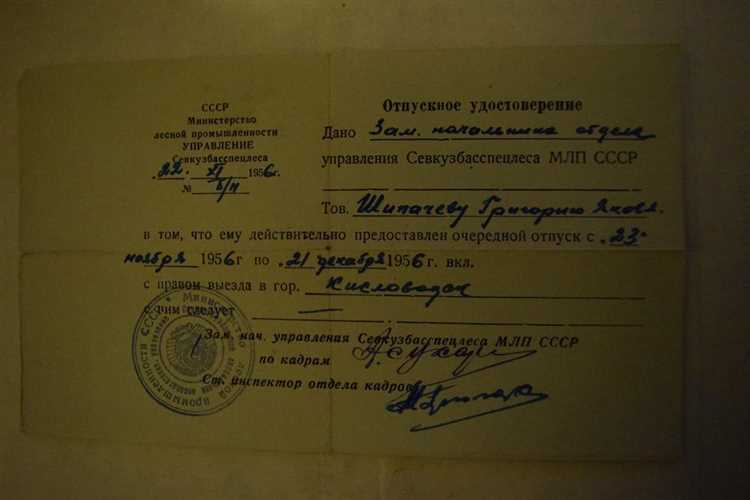 СССР
Министерство
лесной промышленности
УПРАВЛЕНИЕ
Севкузбасспецлеса
„22" XI 1956 г.
№ б/н
Отпускное удостоверение
Дано Зам. начальника отдела
управления Севкузбасспецлеса МЛП СССР
Тов. Шипачеву Григорию Яковл.
в том, что ему действительно предоставлен очередной отпуск с „23"
ноября 1956 г по „21 декабря 1956 г. вкл.
с правом выезда в гор. Кисловодск
с ним следует —
Зам. нач. управления Севкузбасспецлеса МЛП СССР
по кадрам
Ст. инспектор отдела кадров
Министерство лесной промышленности СССР